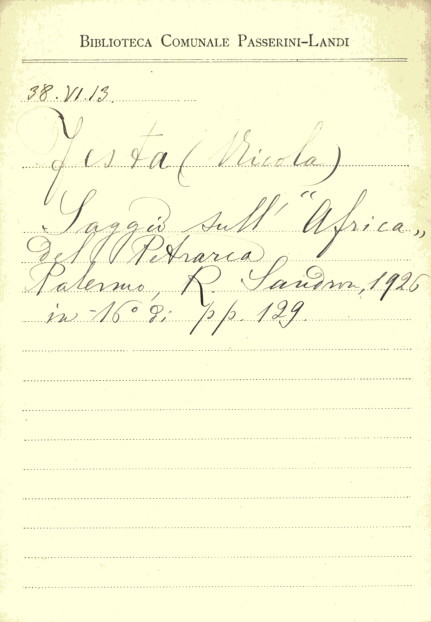 BIBLIOTECA COMUNALE PASSERINI-LANDI
38.VI.13.
Festa (Nicola)
Saggio sull' "Africa„
del Petrarca
Palermo, R. Sandron, 1926
in-16° di pp. 129.